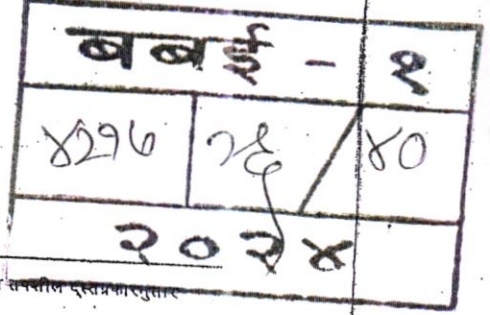 बबई - १
४२१७ २६/४०
२०२४
तपशील दस्तप्रकारनुसार